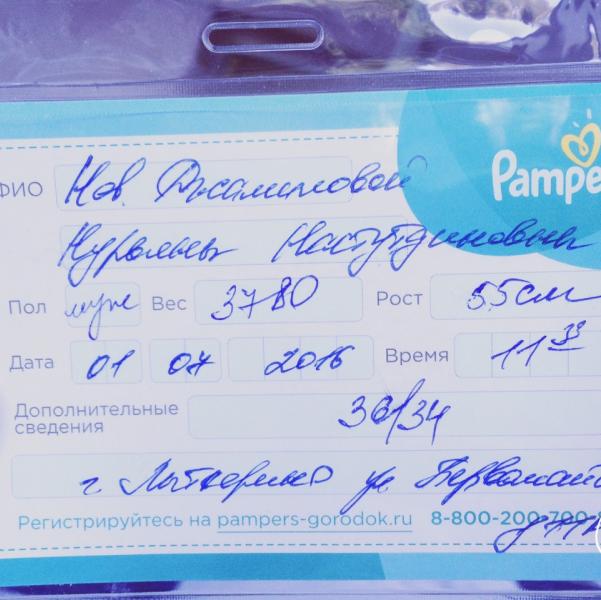 Pampe
ФИО Нов.
Пол муж Вес 3780 Рост 55см
Дата 01 07 2016 Время 11 33
Дополнительные сведения 36/34
г Лыткарино ул Первомайс
Регистрируйтесь на pampers-gorodok.ru 8-800-200-700-